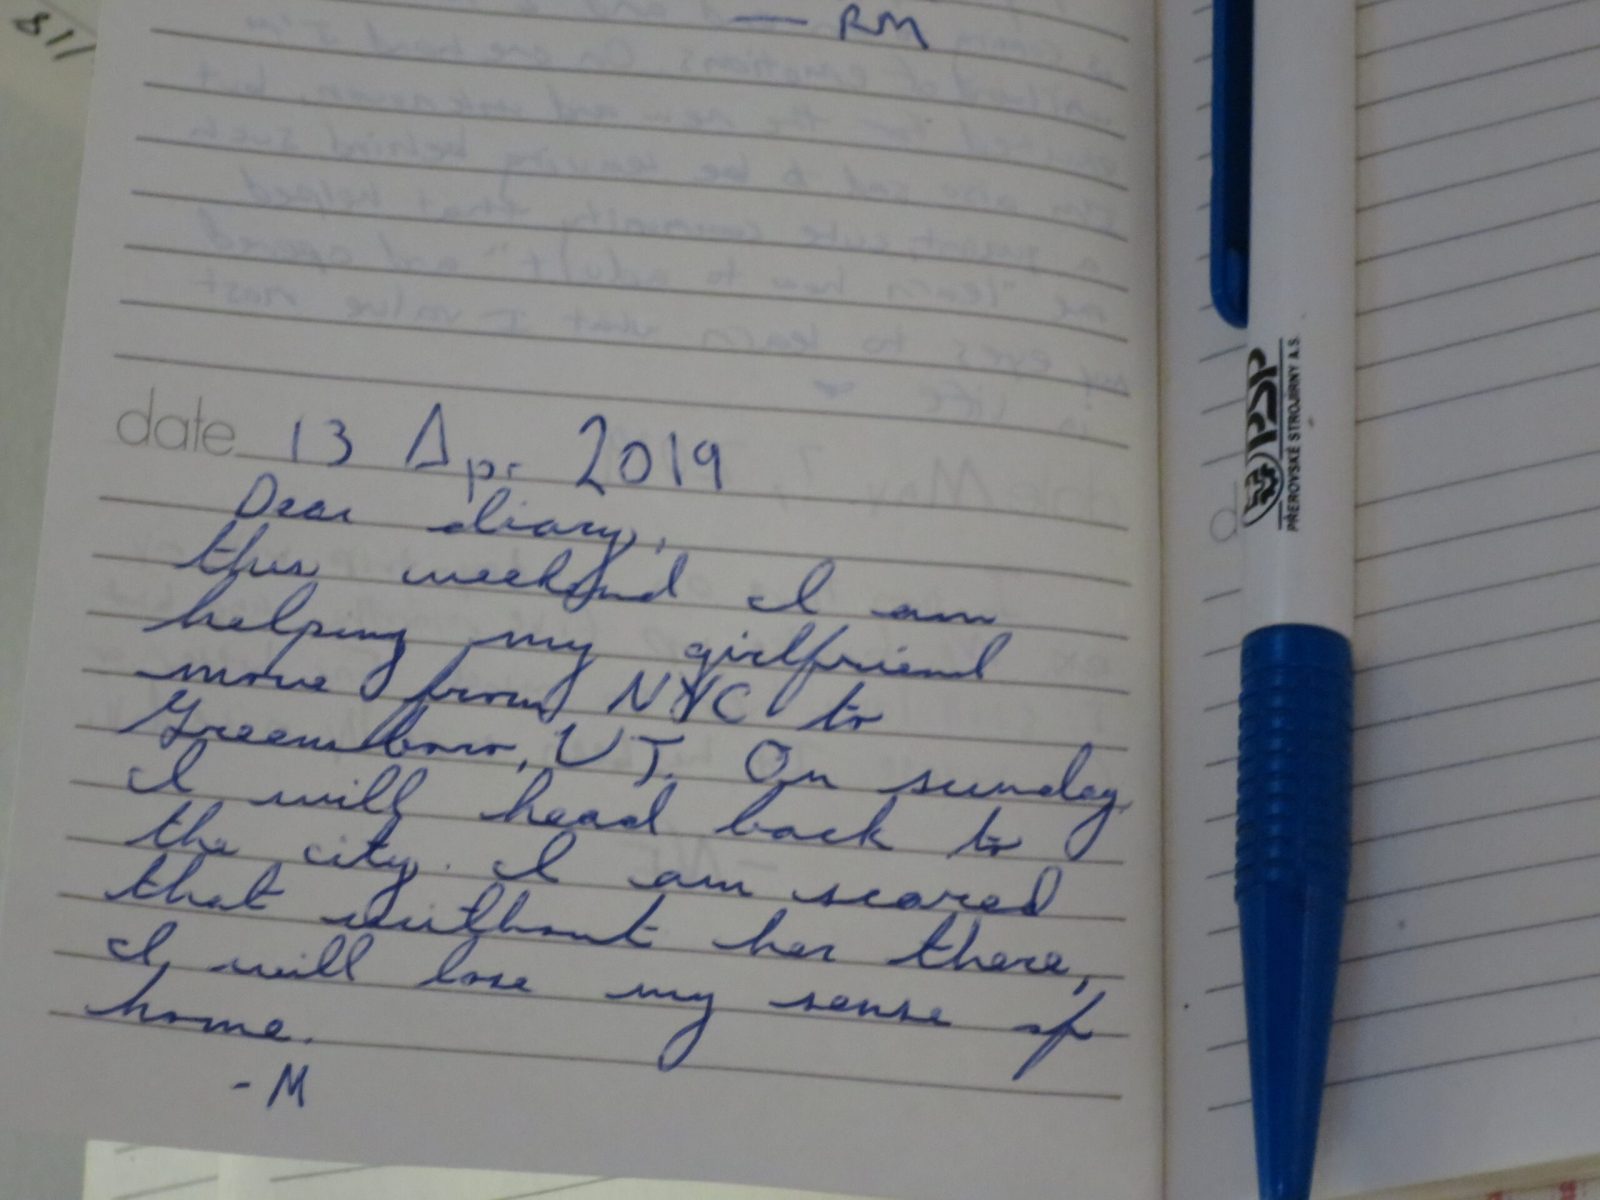 811
— RM
date 13 Apr 2019
Dear diary,
this weekend I am
helping my girlfriend
move from NYC to
Greensboro, VT. On sunday
I will head back to
the city. I am scared
that without her there,
I will lose my sense of
home.
- M
PSP
PŘEROVSKÉ STROJÍRNY A.S.